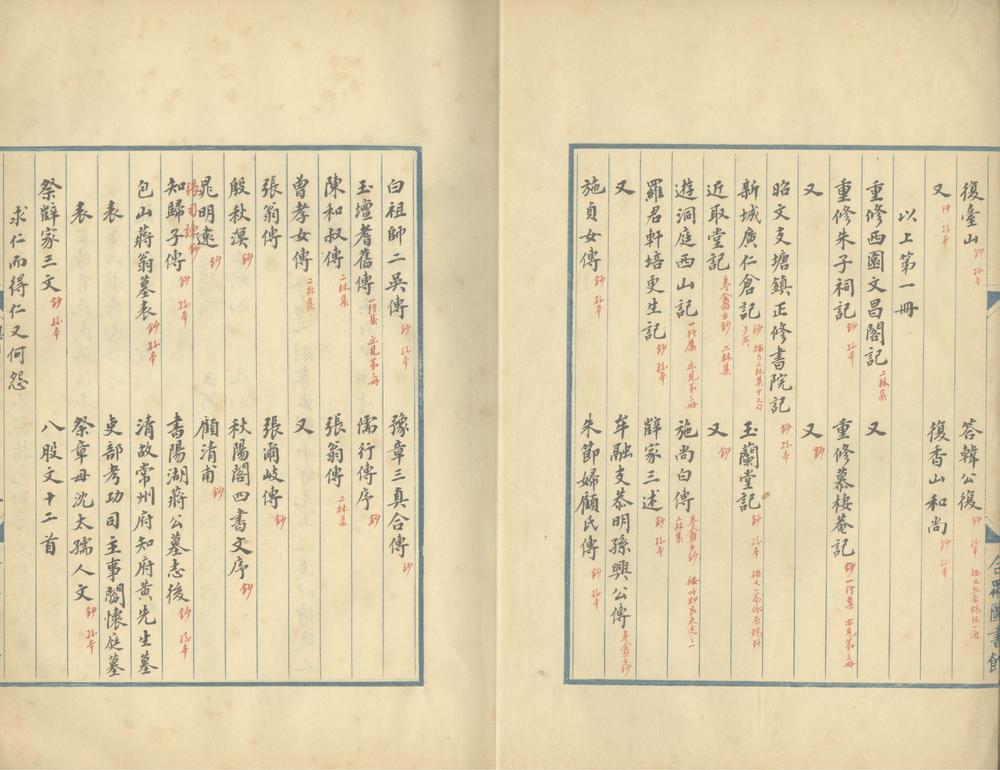 復臺山 鈔 孫本 答韓公復 鈔 孫本
又 鈔 孫本 復香山和尚 鈔 孫本
以上第一冊
重修西園文昌閣記 二林集 又
重修朱子祠記 鈔 孫本 重修慕棲菴記 鈔 一行集 亦見第三冊
又 又 鈔
昭文支塘鎮正修書院記 鈔 孫本
新城廣仁倉記 鈔 玉蘭堂記 鈔 孫本
近取堂記 二林集 又 鈔
遊洞庭西山記 一行集 亦見第三冊 施尚白傳 二林集
羅君軒培更生記 鈔 孫本 薛家三述 鈔 孫本
又 牟融支恭明孫興公傳
施貞女傳 鈔 孫本 朱節婦顧氏傳 鈔 孫本
合眾圖書館
白祖師二吳傳 鈔 孫本 豫章三真合傳 鈔
玉壇耆舊傳 一行集 亦見第三冊 儒行傳序 鈔
陳和叔傳 二林集 張翁傳 二林集
曾孝女傳 二林集 又
張翁傳 張爾岐傳 鈔
殷秋溟 鈔 秋陽閣四書文序 鈔
晁明遠 鈔 顧清甫 鈔
張司諫 鈔
知歸子傳 鈔 孫本 書陽湖蔣公墓志後 鈔 孫本
包山蔣翁墓表 鈔 孫本 清故常州府知府黃先生墓
表 吏部考功司主事閻懷庭墓
表 祭章母沈太孺人文 鈔 孫本
祭薛家三文 鈔 孫本 八股文十二首
求仁而得仁又何怨